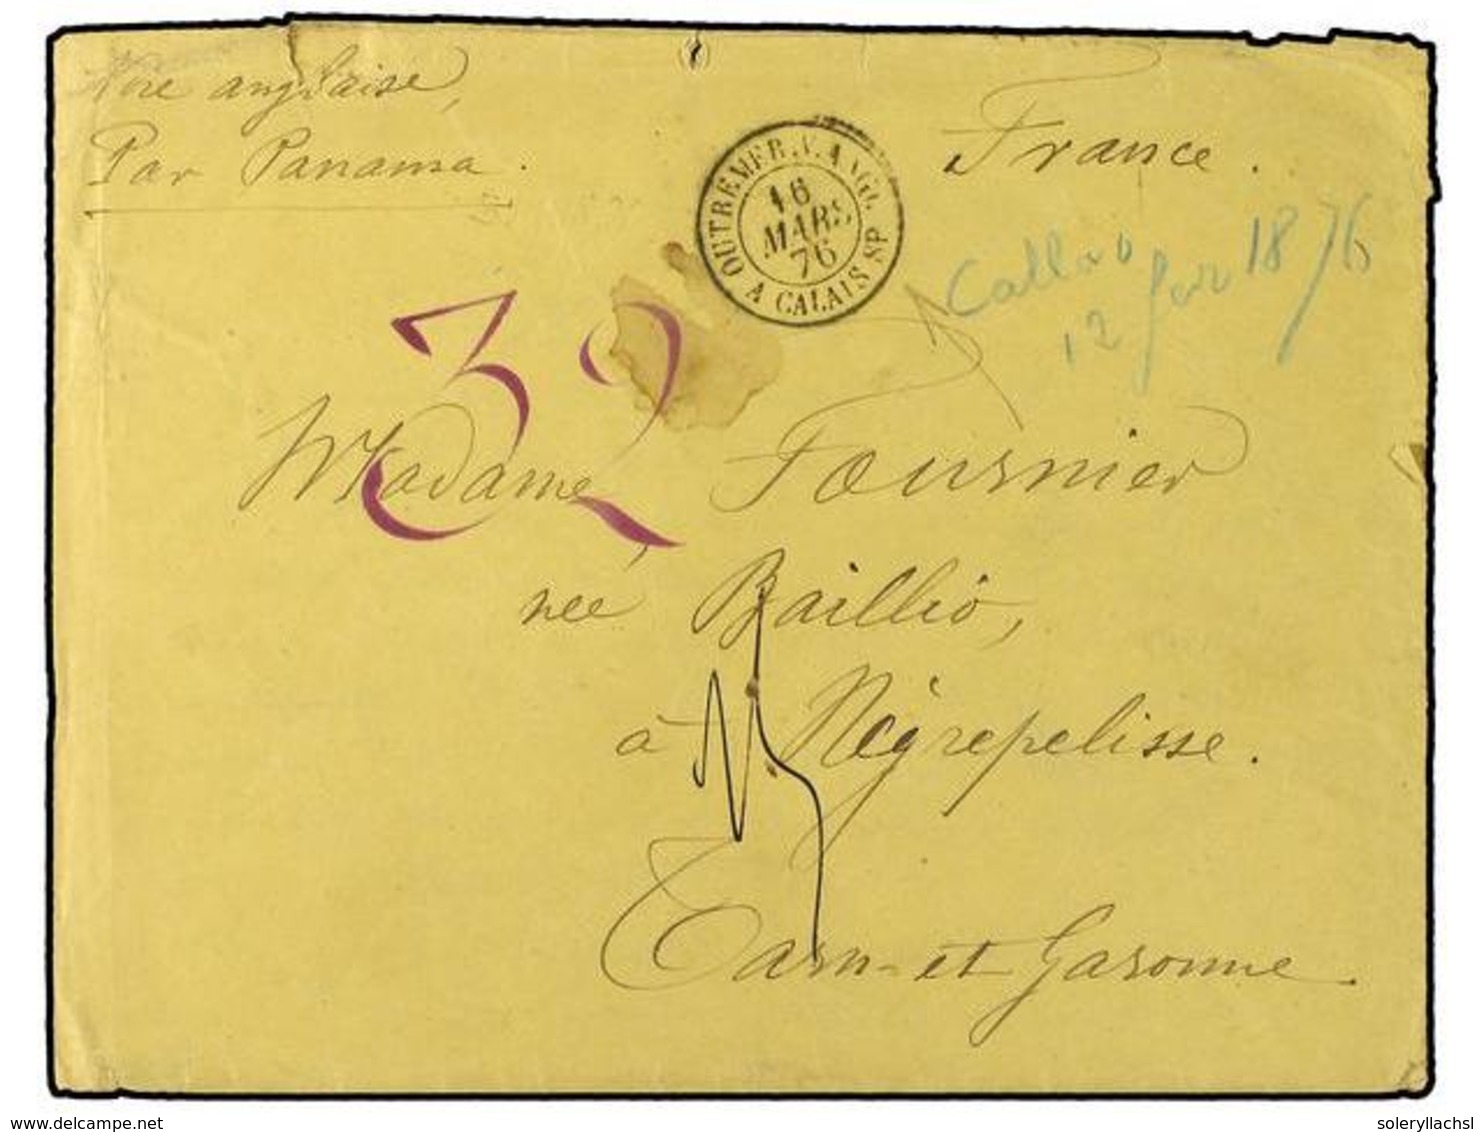 Voie anglaise,
Par Panama.
OUTREMER.V.ANGL.
16
MARS
76
A CALAIS SP
France.
Callao
12 fev 1876
32
Madame Fournier
née Baillio,
à Négrepelisse.
Tarn-et Garonne.
delcampe.net
soleryllachsl